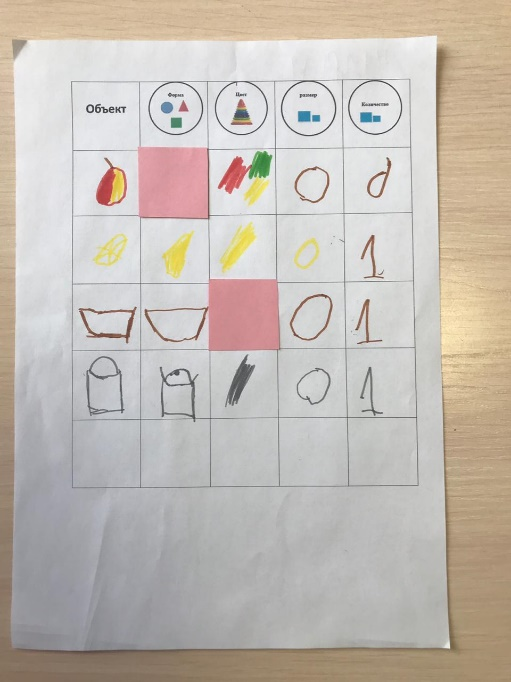 Объект
Форма
Цвет
размер
Количество
d
1
1
1